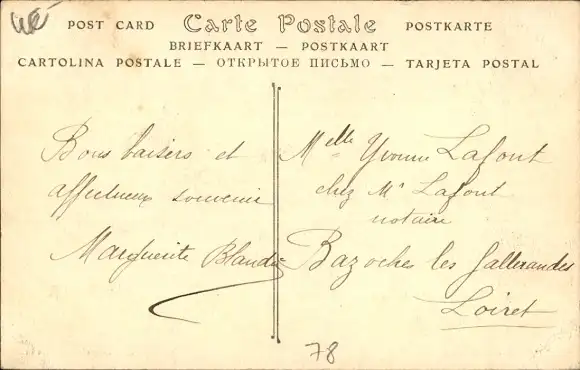 POST CARD Carte Postale POSTKARTE
BRIEFKAART — POSTKAART
CARTOLINA POSTALE — ОТКРЫТОЕ ПИСЬМО — TARJETA POSTAL
Bons baisers et
affectueux souvenir
Marguerite
Melle Yvonne Lafont
chez Mr Lafont
notaire
Bazoches les Gallerandes
Loiret
78